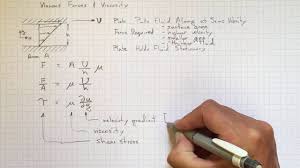 Viscous Forces & Viscosity
U
Plate Pulls Fluid Along at Same Velocity
Force Required - surface area
- higher velocity
- smaller
Plate Holds Fluid Stationary
Area A
F = A U/h μ
F/A = U/h μ
τ = μ ∂u/∂y
velocity gradient [
viscosity
shear stress